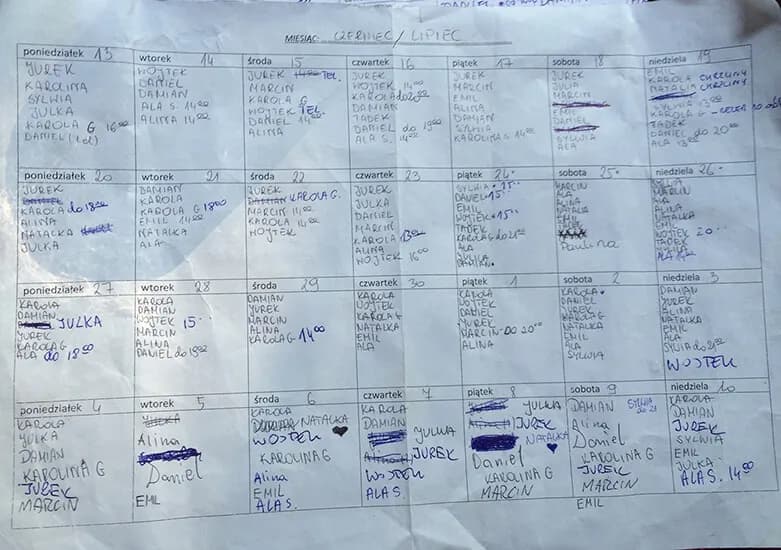 MIESIĄC: CZERWIEC / LIPIEC
poniedziałek 13
JUREK
KAROLINA
SYLWIA
JULKA
KAROLA G 16:00
DANIEL
wtorek 14
WOJTEK
DANIEL
DAMIAN
ALA S. 14:00
ALINA 14:00
środa 15
JUREK TEL.
MARCIN
KAROLA G
WOJTEK TEL.
DANIEL 14:00
ALINA
czwartek 16
JUREK
WOJTEK 14:00
KAROLA do 20:00
DAMIAN
TADEK
DANIEL do 19:00
ALA S. 14:00
piątek 17
JUREK
MARCIN
EMIL
ALINA
DAMIAN
SYLWIA
KAROLINA G 14:00
sobota 18
JUREK
JULIA
MARCIN
EMIL
DANIEL
SYLWIA
ALA
niedziela 19
EMIL
KAROLA CHRZCINY
NATALKA CHRZCINY
SYLWIA 13:00
KAROLA G
TADEK
DANIEL do 20:00
ALA 13:00
poniedziałek 20
JUREK
KAROLA do 18:00
ALINA
NATALKA
JULKA
wtorek 21
DAMIAN
KAROLA
KAROLA G 18:00
EMIL 14:00
NATALKA
ALA
środa 22
JUREK
DAMIAN KAROLA G.
MARCIN 14:00
KAROLA 14:00
WOJTEK
czwartek 23
JUREK
JULKA
DANIEL
MARCIN
KAROLA 13:00
ALINA
WOJTEK 16:00
piątek 24
SYLWIA 15:00
DANIEL 15:00
EMIL
WOJTEK 15:00
TADEK
KAROLA G do 21:00
ALA
JULKA
DAMIAN
sobota 25
MARCIN
ALA
ALINA
NATALKA
EMIL
Paulina
niedziela 26
JULKA
MARCIN
ALA
ALINA
NATALKA
EMIL
WOJTEK 20:00
TADEK
SYLWIA
poniedziałek 27
KAROLA
DAMIAN
JULKA
JUREK
KAROLA G
ALA do 18:00
wtorek 28
KAROLA
DAMIAN
WOJTEK 15:00
MARCIN
ALINA
DANIEL do 19:00
środa 29
DAMIAN
JUREK
MARCIN
ALINA
KAROLA G 14:00
czwartek 30
KAROLA
WOJTEK
KAROLA G
NATALKA
EMIL
ALA
piątek 1
KAROLA
WOJTEK
DANIEL
JUREK
MARCIN DO 20:00
ALINA
sobota 2
KAROLA
DANIEL
JUREK
KAROLA G
NATALKA
EMIL
ALA
SYLWIA
niedziela 3
DAMIAN
JUREK
ALINA
NATALKA
EMIL
ALA
SYLWIA do 21:00
WOJTEK
poniedziałek 4
KAROLA
JULKA
DAMIAN
KAROLINA G
JUREK
MARCIN
wtorek 5
Alina
Daniel
EMIL
środa 6
KAROLA
NATALKA
WOJTEK
KAROLINA G
Alina
EMIL
ALA S.
czwartek 7
KAROLA
DAMIAN
JULKA
JUREK
WOJTEK
ALA S
piątek 8
JULKA
JUREK
NATALKA
Daniel
KAROLINA G
MARCIN
sobota 9
DAMIAN SYLWIA do 21
Alina
Daniel
KAROLINA G
JUREK
MARCIN
EMIL
niedziela 10
KAROLA
DAMIAN
JUREK
SYLWIA
EMIL
JULKA
ALA S. 14:00